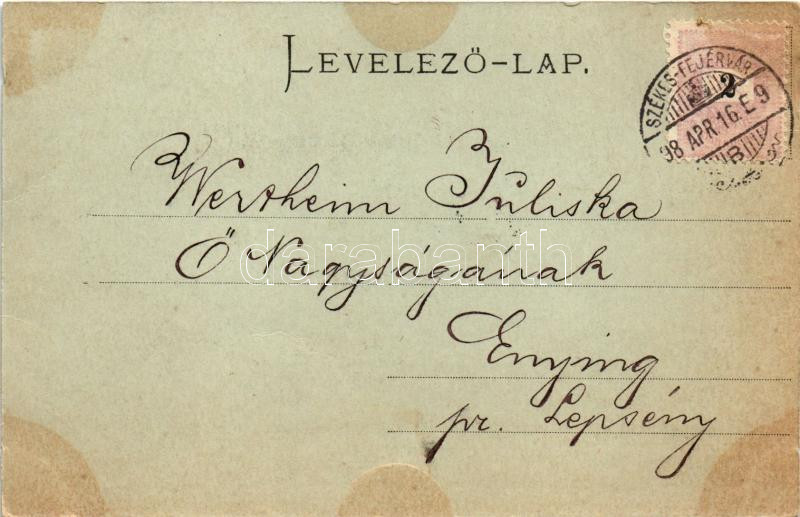 LEVELEZŐ-LAP.
SZÉKES-FEJÉRVÁR
2
98 APR 16. E 9
B
Wertheim Juliska
Ő Nagyságának
darabanth
Enying
pr. Lepsény